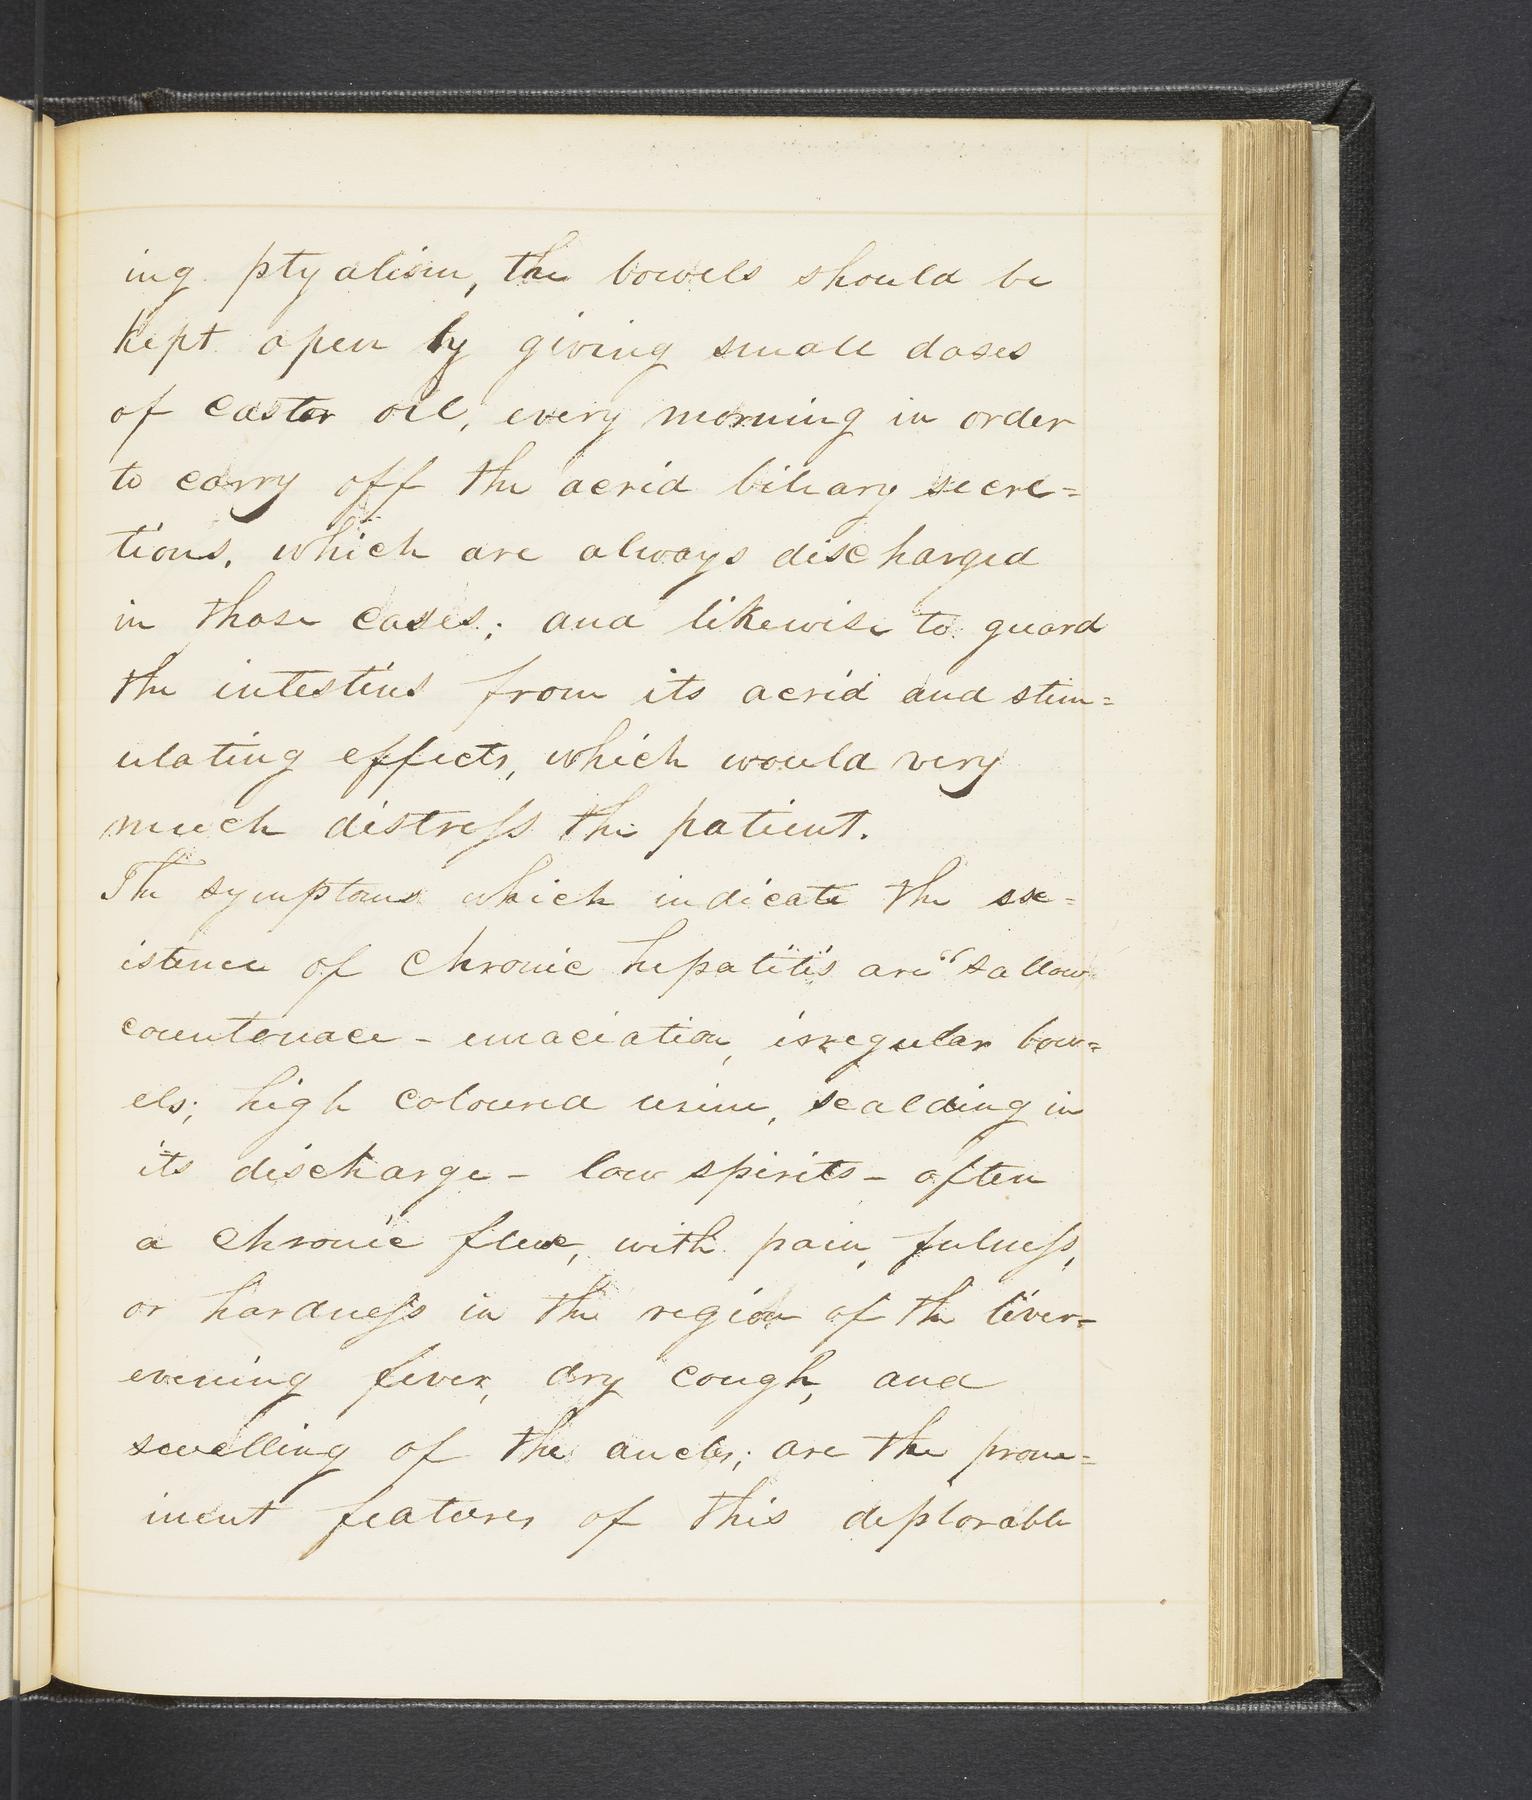 ing ptyalism, the bowels should be
kept open by giving small doses
of castor oil, every morning in order
to carry off the acrid biliary secre=
tions, which are always discharged
in those cases; and likewise to guard
the intestins from its acrid and stim=
ulating effects, which would very
much distress the patient.
The symptoms which indicate the ex=
istence of chronic hepatitis are "sallow
countenace - emaciation, irregular bow=
els; high coloured urine, scalding in
its discharge - low spirits - often
a chronic flux, with pain, fulness,
or hardness in the region of the liver-
evening fever, dry cough, and
swelling of the ancles; are the prom=
inent features of this deplorable